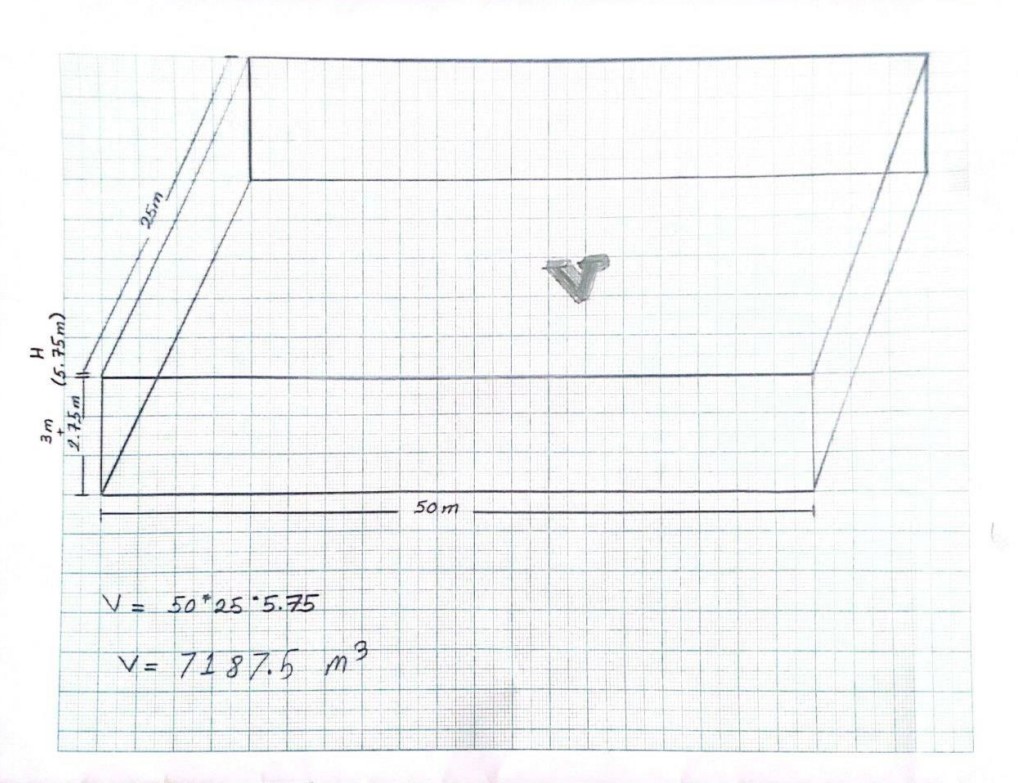 25m
V
H
(5.75m)
3m
+
2.75m
50m
V = 50*25*5.75
V = 7187.5 m³